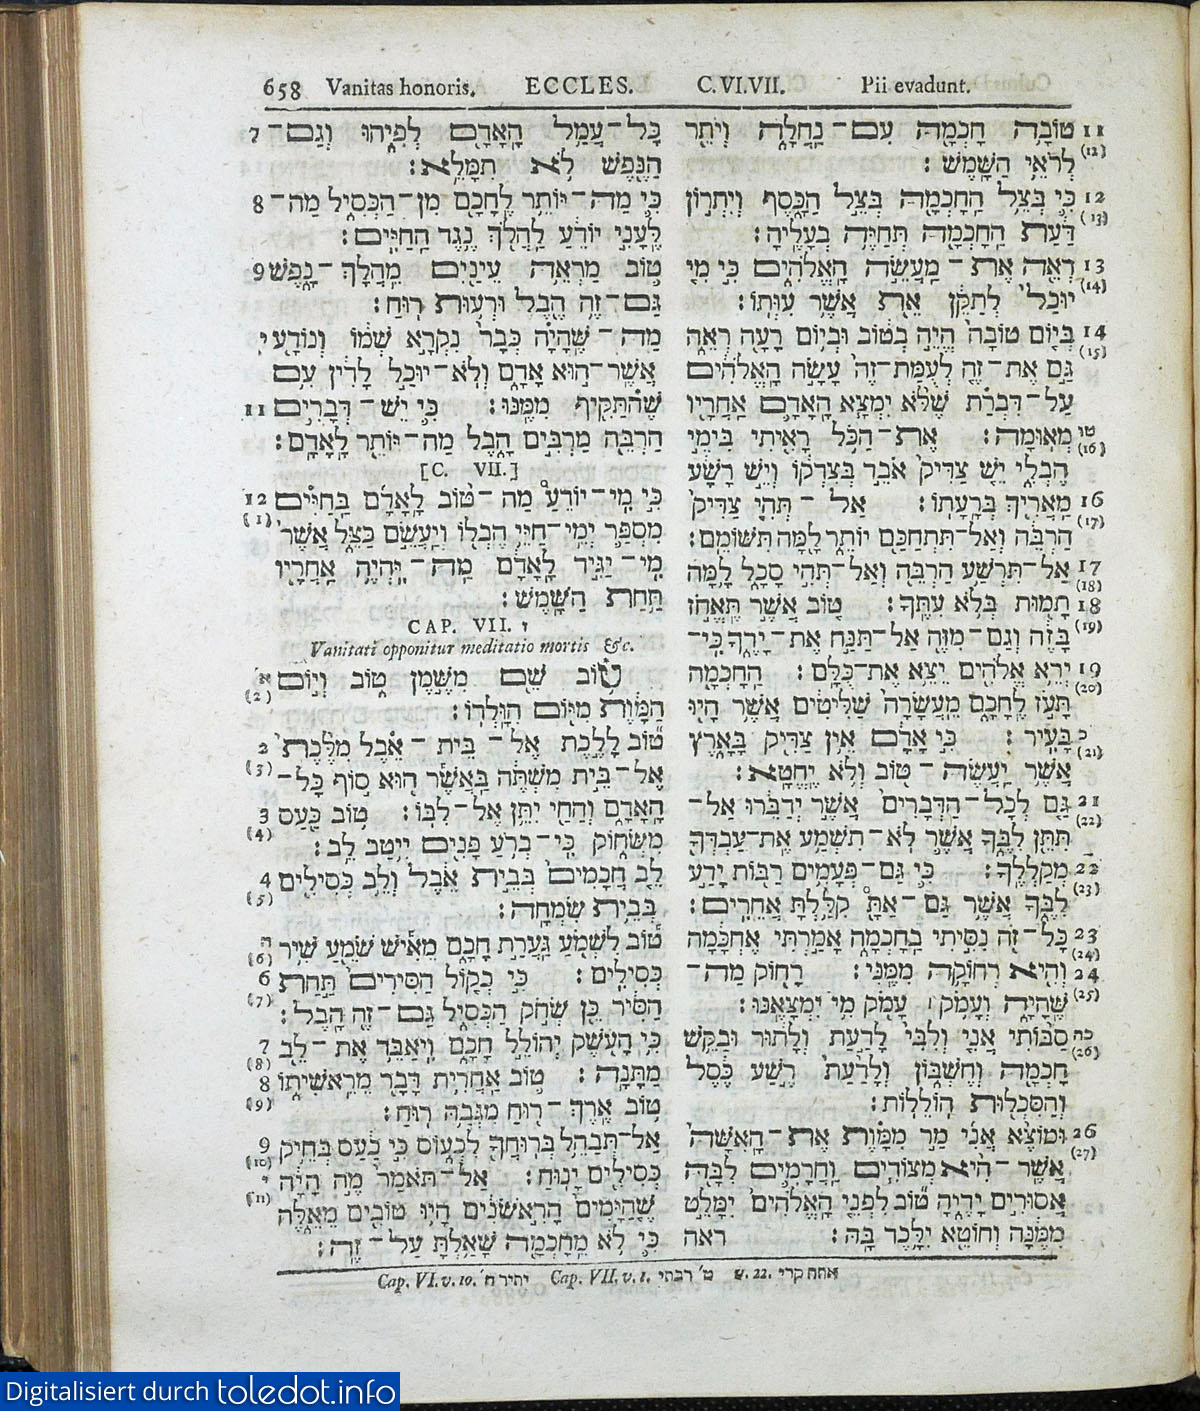 658 Vanitas honoris. ECCLES. C. VI. VII. Pii evadunt.
7 כָּל־עֲמַל הָאָדָם לְפִיהוּ וְגַם־
הַנֶּפֶשׁ לֹא תִמָּלֵא׃
8 כִּי מַה־יּוֹתֵר לֶחָכָם מִן־הַכְּסִיל מַה־
לֶּעָנִי יוֹדֵעַ לַהֲלֹךְ נֶגֶד הַחַיִּים׃
9 טוֹב מַרְאֵה עֵינַיִם מֵהֲלָךְ־נָפֶשׁ
גַּם־זֶה הֶבֶל וּרְעוּת רוּחַ׃
י מַה־שֶּׁהָיָה כְּבָר נִקְרָא שְׁמוֹ וְנוֹדָע
אֲשֶׁר־הוּא אָדָם וְלֹא־יוּכַל לָדִין עִם
11 שֶׁהתַּקִּיף מִמֶּנּוּ׃ כִּי יֵשׁ־דְּבָרִים
הַרְבֵּה מַרְבִּים הָבֶל מַה־יּוֹתֵר לָאָדָם׃
[C. VII.]
12 כִּי מִי־יוֹדֵעַ מַה־טּוֹב לָאָדָם בַּחַיִּים
(1) מִסְפַּר יְמֵי־חַיֵּי הֶבְלוֹ וְיַעֲשֵׂם כַּצֵּל אֲשֶׁר
מִי־יַגִּיד לָאָדָם מַה־יִּהְיֶה אַחֲרָיו
תַּחַת הַשָּׁמֶשׁ׃
CAP. VII. ז
Vanitati opponitur meditatio mortis &c.
א טוֹב שֵׁם מִשֶּׁמֶן טוֹב וְיוֹם
(2) הַמָּוֶת מִיּוֹם הִוָּלְדוֹ׃
2 טוֹב לָלֶכֶת אֶל־בֵּית־אֵבֶל מִלֶּכֶת
(3) אֶל־בֵּית מִשְׁתֶּה בַּאֲשֶׁר הוּא סוֹף כָּל־
3 הָאָדָם וְהַחַי יִתֵּן אֶל־לִבּוֹ׃ טוֹב כַּעַס
(4) מִשְּׂחוֹק כִּי־בְרֹעַ פָּנִים יִיטַב לֵב׃
4 לֵב חֲכָמִים בְּבֵית אֵבֶל וְלֵב כְּסִילִים
(5) בְּבֵית שִׂמְחָה׃
ה טוֹב לִשְׁמֹעַ גַּעֲרַת חָכָם מֵאִישׁ שֹׁמֵעַ שִׁיר
(6)
6 כְּסִילִים׃ כִּי כְקוֹל הַסִּירִים תַּחַת
(7) הַסִּיר כֵּן שְׂחֹק הַכְּסִיל גַּם־זֶה הָבֶל׃
7 כִּי הָעֹשֶׁק יְהוֹלֵל חָכָם וִיאַבֵּד אֶת־לֵב
(8)
8 מַתָּנָה׃ טוֹב אַחֲרִית דָּבָר מֵרֵאשִׁיתוֹ
(9) טוֹב אֶרֶךְ־רוּחַ מִגְּבַהּ רוּחַ׃
9 אַל־תְּבַהֵל בְּרוּחֲךָ לִכְעוֹס כִּי כַעַס בְּחֵיק
(10)
י כְּסִילִים יָנוּחַ׃ אַל־תֹּאמַר מֶה הָיָה
(11) שֶׁהַיָּמִים הָרִאשֹׁנִים הָיוּ טוֹבִים מֵאֵלֶּה
כִּי לֹא מֵחָכְמָה שָׁאַלְתָּ עַל־זֶה׃
11 טוֹבָה חָכְמָה עִם־נַחֲלָה וְיֹתֵר
(12) לְרֹאֵי הַשָּׁמֶשׁ׃
12 כִּי בְּצֵל הַחָכְמָה בְּצֵל הַכָּסֶף וְיִתְרוֹן
(13) דַּעַת הַחָכְמָה תְּחַיֶּה בְעָלֶיהָ׃
13 רְאֵה אֶת־מַעֲשֵׂה הָאֱלֹהִים כִּי מִי
(14) יוּכַל לְתַקֵּן אֵת אֲשֶׁר עִוְּתוֹ׃
14 בְּיוֹם טוֹבָה הֱיֵה בְטוֹב וּבְיוֹם רָעָה רְאֵה
(15) גַּם אֶת־זֶה לְעֻמַּת־זֶה עָשָׂה הָאֱלֹהִים
עַל־דִּבְרַת שֶׁלֹּא יִמְצָא הָאָדָם אַחֲרָיו
טו מְאוּמָה׃ אֶת־הַכֹּל רָאִיתִי בִּימֵי
(16) הֶבְלִי יֵשׁ צַדִּיק אֹבֵד בְּצִדְקוֹ וְיֵשׁ רָשָׁע
16 מַאֲרִיךְ בְּרָעָתוֹ׃ אַל־תְּהִי צַדִּיק
(17) הַרְבֵּה וְאַל־תִּתְחַכַּם יוֹתֵר לָמָּה תִּשּׁוֹמֵם׃
17 אַל־תִּרְשַׁע הַרְבֵּה וְאַל־תְּהִי סָכָל לָמָּה
(18)
18 תָמוּת בְּלֹא עִתֶּךָ׃ טוֹב אֲשֶׁר תֶּאֱחֹז
(19) בָּזֶה וְגַם־מִזֶּה אַל־תַּנַּח אֶת־יָדֶךָ כִּי־
19 יְרֵא אֱלֹהִים יֵצֵא אֶת־כֻּלָּם׃ הַחָכְמָה
(20) תָּעֹז לֶחָכָם מֵעֲשָׂרָה שַׁלִּיטִים אֲשֶׁר הָיוּ
כ בָּעִיר׃ כִּי אָדָם אֵין צַדִּיק בָּאָרֶץ
(21) אֲשֶׁר יַעֲשֶׂה־טּוֹב וְלֹא יֶחֱטָא׃
21 גַּם לְכָל־הַדְּבָרִים אֲשֶׁר יְדַבֵּרוּ אַל־
(22) תִּתֵּן לִבֶּךָ אֲשֶׁר לֹא־תִשְׁמַע אֶת־עַבְדְּךָ
22 מְקַלְלֶךָ׃ כִּי גַּם־פְּעָמִים רַבּוֹת יָדַע
(23) לִבֶּךָ אֲשֶׁר גַּם־אַתָּ קִלַּלְתָּ אֲחֵרִים׃
23 כָּל־זֹה נִסִּיתִי בַחָכְמָה אָמַרְתִּי אֶחְכָּמָה
(24)
24 וְהִיא רְחוֹקָה מִמֶּנִּי׃ רָחוֹק מַה־
(25) שֶּׁהָיָה וְעָמֹק ׀ עָמֹק מִי יִמְצָאֶנּוּ׃
כה סַבּוֹתִי אֲנִי וְלִבִּי לָדַעַת וְלָתוּר וּבַקֵּשׁ
(26) חָכְמָה וְחֶשְׁבּוֹן וְלָדַעַת רֶשַׁע כֶּסֶל
וְהַסִּכְלוּת הוֹלֵלוֹת׃
26 וּמוֹצֶא אֲנִי מַר מִמָּוֶת אֶת־הָאִשָּׁה
(27) אֲשֶׁר־הִיא מְצוֹדִים וַחֲרָמִים לִבָּהּ
אֲסוּרִים יָדֶיהָ טוֹב לִפְנֵי הָאֱלֹהִים יִמָּלֵט
מִמֶּנָּה וְחוֹטֵא יִלָּכֶד בָּהּ׃ ראה
Cap. VI. v. 10. יתיר ה׳ Cap. VII. v. 1. ט׳ רבתי v. 22. אתה קרי
Digitalisiert durch toledot.info